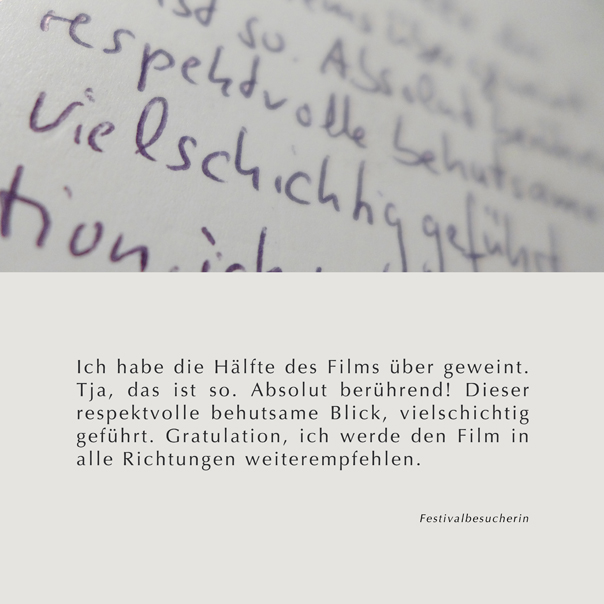 ist so. Absolut
respektvolle behutsame
vielschichtig geführt
tion, ich
Ich habe die Hälfte des Films über geweint.
Tja, das ist so. Absolut berührend! Dieser
respektvolle behutsame Blick, vielschichtig
geführt. Gratulation, ich werde den Film in
alle Richtungen weiterempfehlen.
Festivalbesucherin